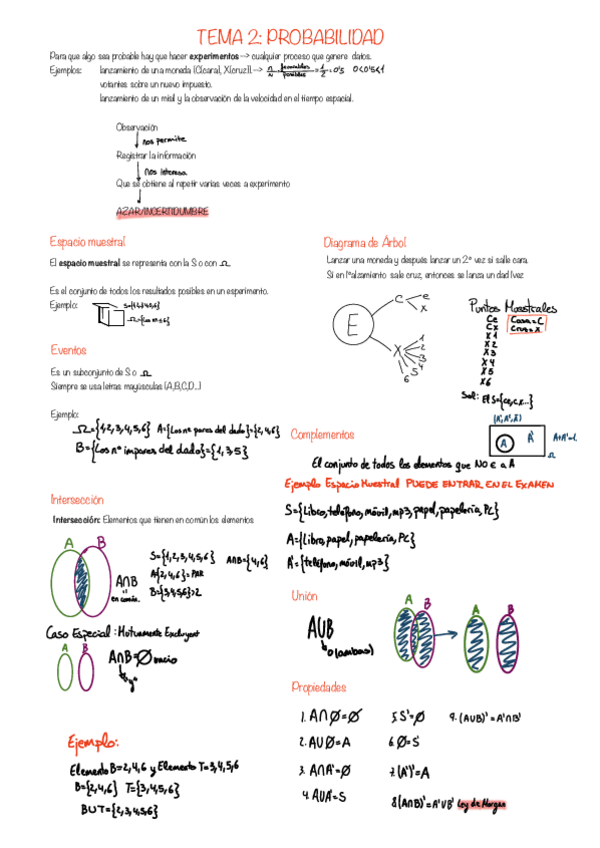 TEMA 2: PROBABILIDAD
Para que algo sea probable hay que hacer experimentos --> cualquier proceso que genere datos.
Ejemplos: lanzamiento de una moneda (C(cara), X(cruz)). --> n favorables / N posibles = 1/2 = 0'5 0<0'5<1
votantes sobre un nuevo impuesto.
lanzamiento de un misil y la observación de la velocidad en el tiempo espacial.
Observación
nos permite
Registrar la información
nos interesa
Que se obtiene al repetir varias veces a experimento
AZAR/INCERTIDUMBRE
Espacio muestral
El espacio muestral se representa con la S o con Ω
Es el conjunto de todos los resultados posibles en un experimento.
Ejemplo: S={1,2,3,4,5,6}
Eventos
Es un subconjunto de S o Ω
Siempre se usa letras mayúsculas (A,B,C,D...)
Ejemplo:
Ω={1,2,3,4,5,6} A={Los nº pares del dado}={2,4,6}
B={Los nº impares del dado}={1,3,5}
Intersección
Intersección: Elementos que tienen en común los elementos
A B
A∩B
en común.
S={1,2,3,4,5,6} A∩B={4,6}
A{2,4,6}=PAR
B={3,4,5,6}>2
Caso Especial: Mutuamente Excluyent
A B
A∩B=Ø vacio
"y"
Ejemplo:
Elemento B=2,4,6 y Elemento T=3,4,5,6
B={2,4,6} T={3,4,5,6}
BUT={2,3,4,5,6}
Diagrama de Árbol
Lanzar una moneda y después lanzar un 2ª vez si salle cara.
Si en 1ºalzamiento sale cruz, entonces se lanza un dad 1vez
E
C
e
x
X
1
2
3
4
5
6
Puntos Muestrales
Cc
Cx
X1
X2
X3
X4
X5
X6
Cara=C
Cruz=X
Sol: El S={cc,cx...}
Complementos
A A'
Ω
El conjunto de todos los elementos que NO ∈ a A
Ejemplo Espacio Muestral PUEDE ENTRAR EN EL EXAMEN
S={Libro, teléfono, móvil, mp3, papel, papelería, PC}
A={Libro, papel, papelería, PC}
A'={teléfono, móvil, mp3}
Unión
AUB
o (ambos)
A B
A B
Propiedades
1. A∩Ø=Ø
2. AUØ=A
3. A∩A'=Ø
4. AUA'=S
5. S'=Ø
6. Ø'=S
7. (A')'=A
8. (A∩B)'=A'UB' Ley de Morgan
9. (AUB)'=A'∩B'